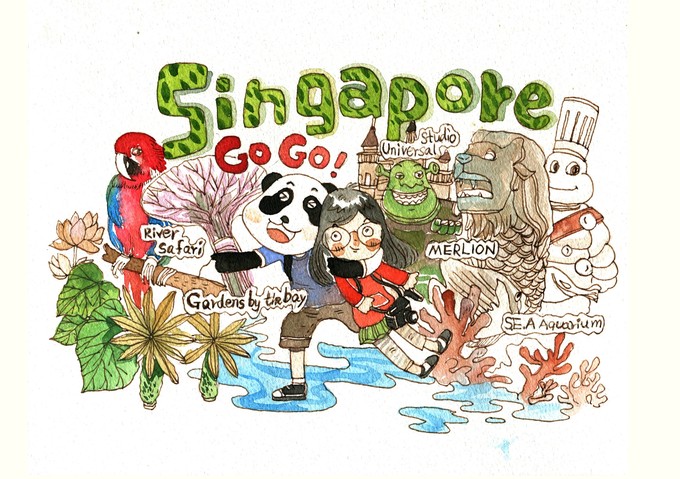 Singapore
Go Go!
Studio
Universal
River
Safari
MERLION
Gardens by the bay
S.E.A Aquarium